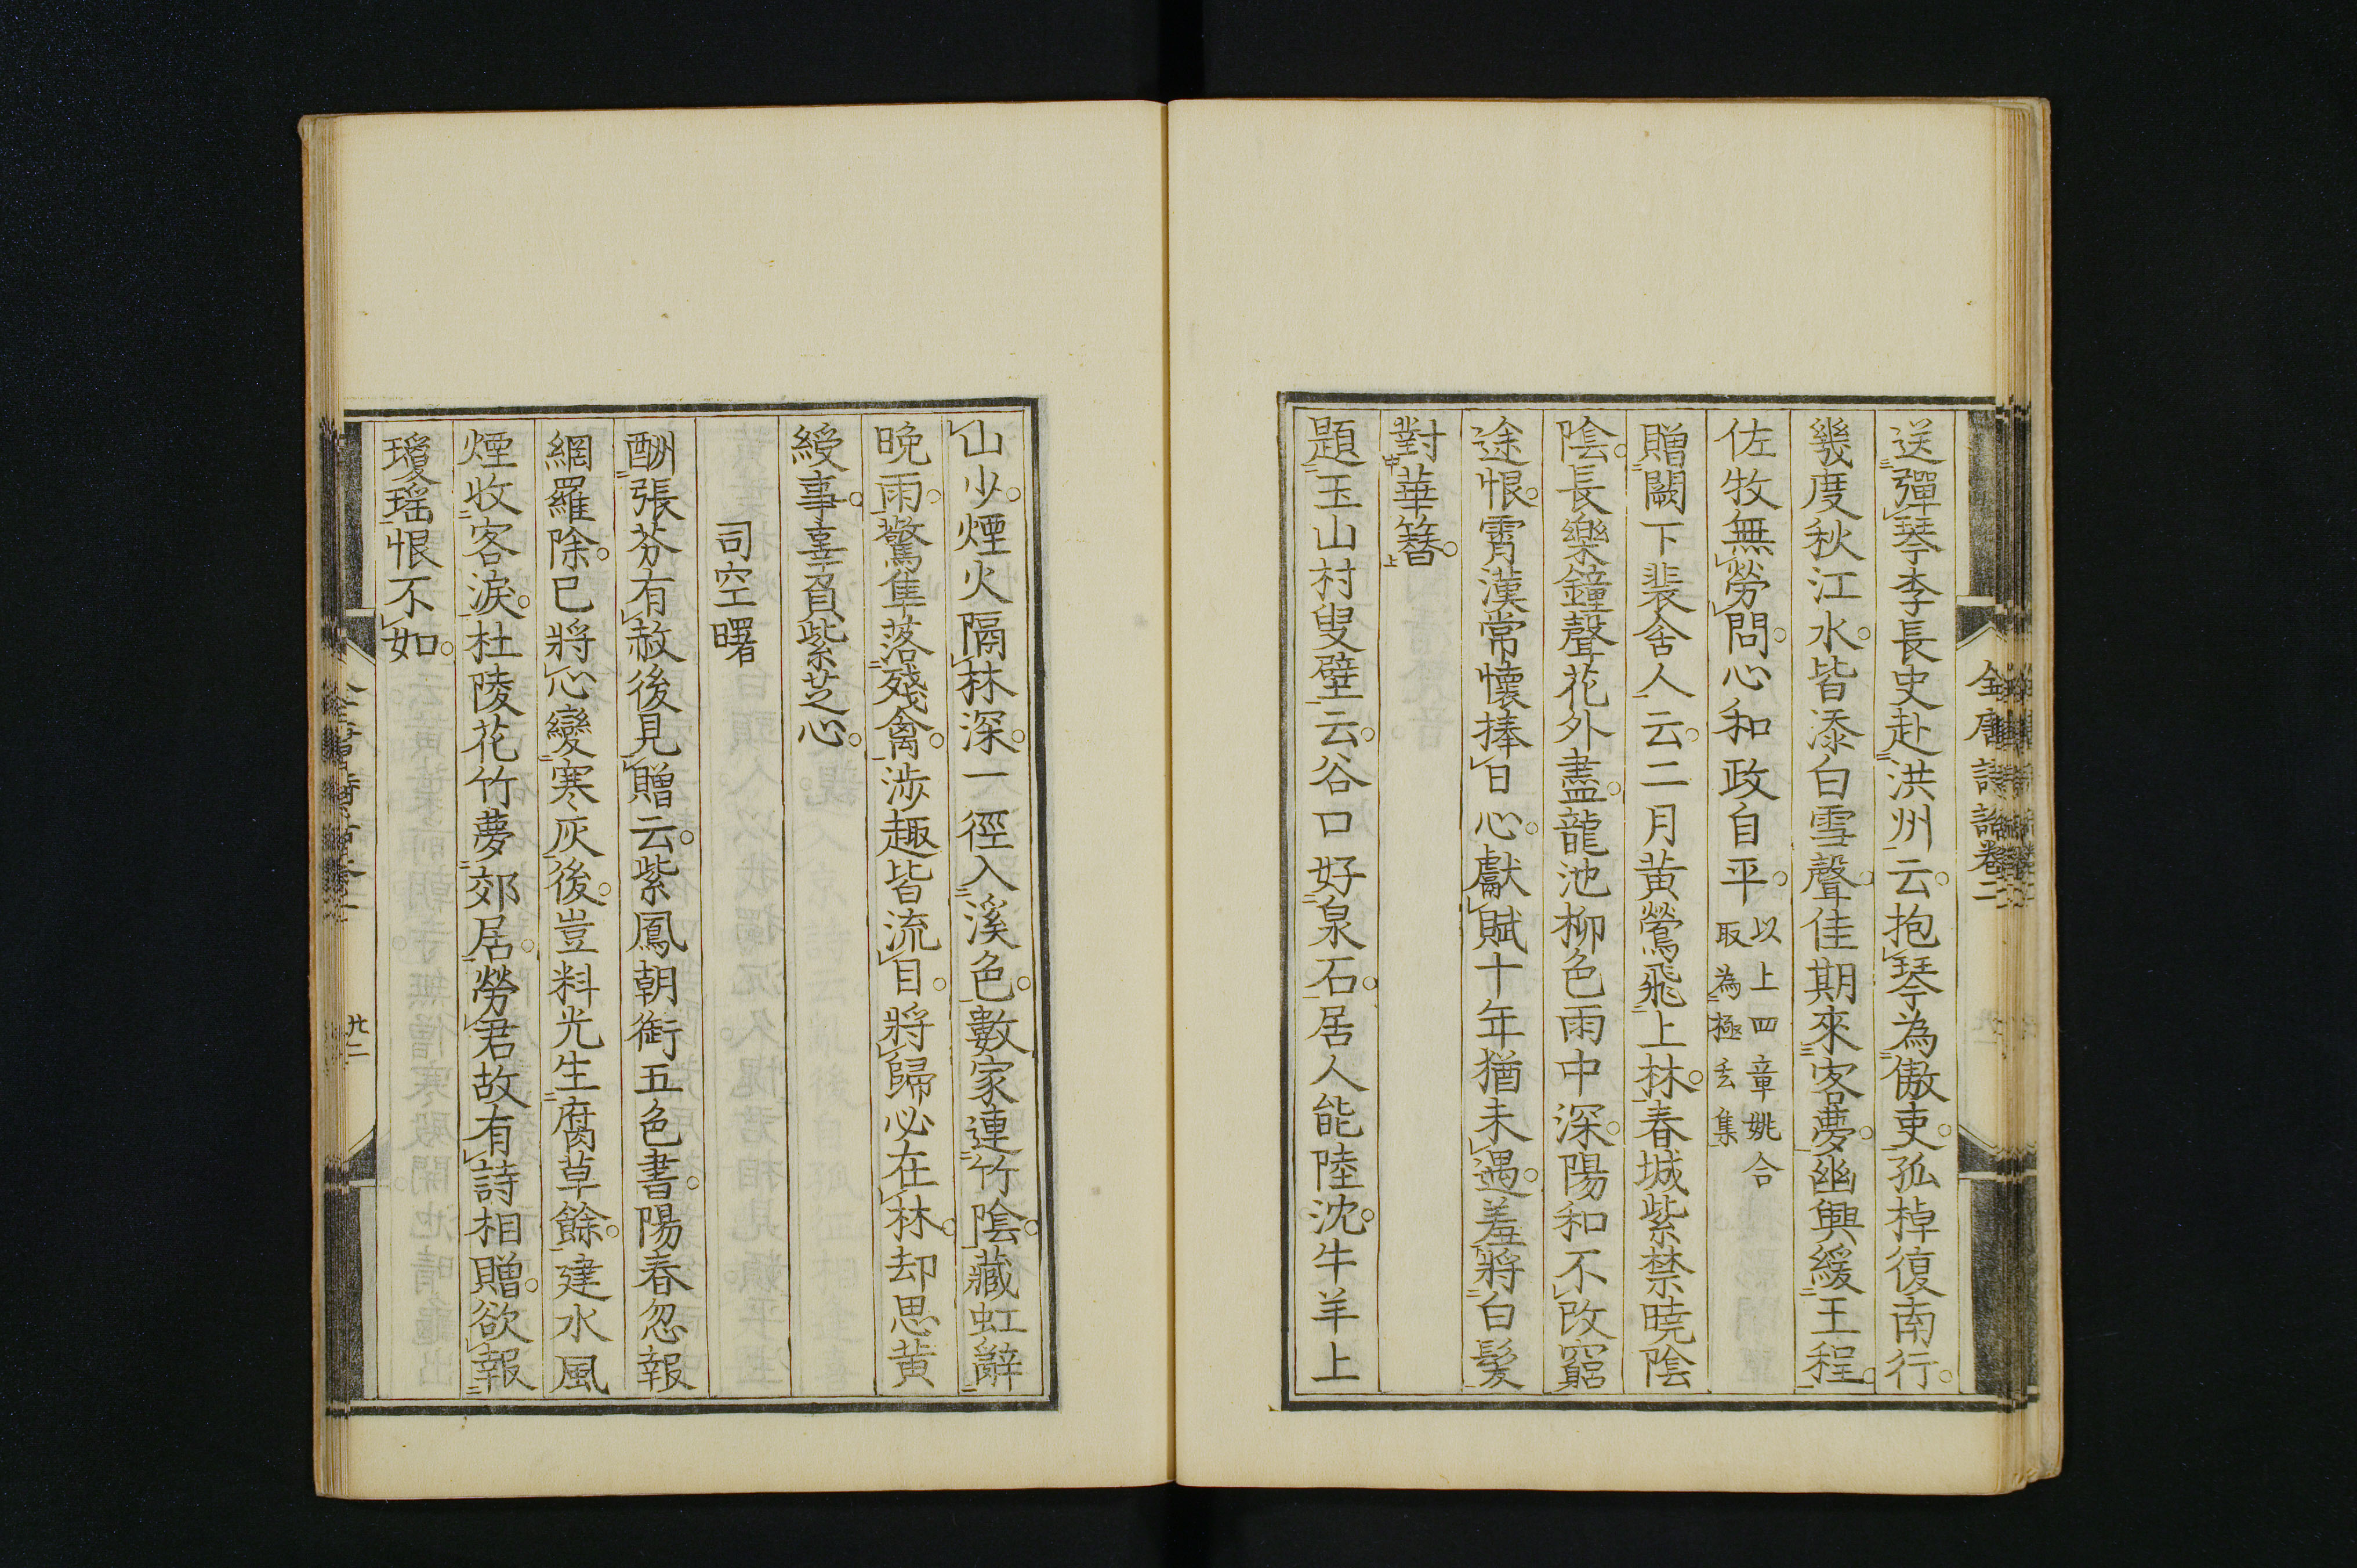 全唐詩話卷二
送彈琴李長史赴洪州云抱琴為傲吏孤棹復南行
幾度秋江水皆添白雪聲佳期來客夢幽興緩王程
佐牧無勞問心和政自平以上四章姚合取為極玄集
贈闕下裴舍人云二月黃鶯飛上林春城紫禁曉陰
陰長樂鐘聲花外盡龍池柳色雨中深陽和不改窮
途恨霄漢常懷捧日心獻賦十年猶未遇羞將白髮
對華簪
題玉山村叟壁云谷口好泉石居人能陸沈牛羊上
山少煙火隔林深一徑入溪色數家連竹陰藏虹辭
晚雨驚隼落殘禽涉趣皆流目將歸必在林却思黃
綬事辜負紫芝心
司空曙
酬張芬有赦後見贈云紫鳳朝銜五色書陽春忽報
網羅除已將心變寒灰後豈料光生腐草餘建水風
煙收客淚杜陵花竹夢郊居勞君故有詩相贈欲報
瓊瑤恨不如
廿二